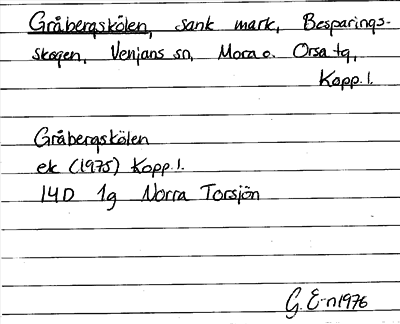 Gråbergskölen, sank mark, Besparings-
skogen, Venjans sn, Mora o. Orsa tg,
Kopp. l.
Gråbergskölen
ek (1975) Kopp. l.
14D 1g Norra Torsjön
G. E-n 1976